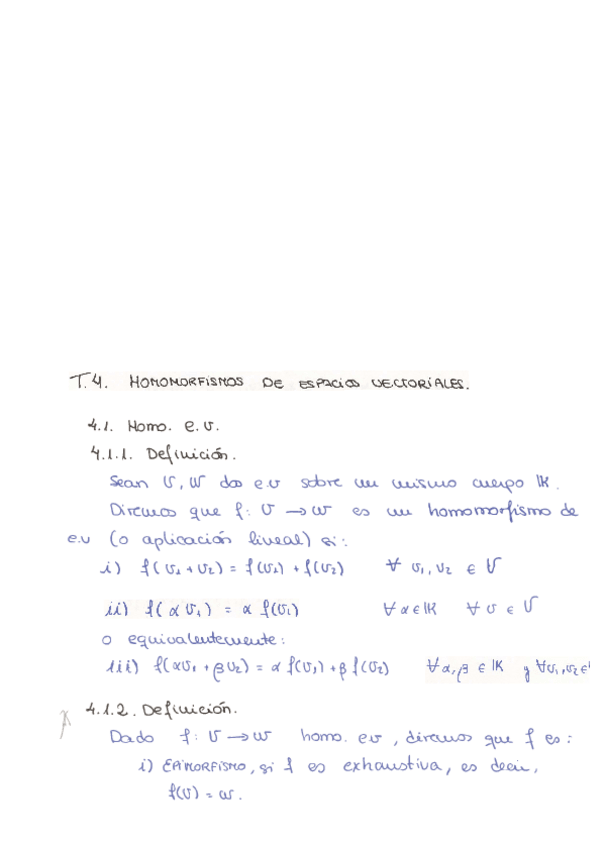 T.4. HOMOMORFISMOS DE ESPACIOS VECTORIALES.
4.1. Homo. e.v.
4.1.1. Definición.
Sean V, W dos e.v sobre un mismo cuerpo K.
Diremos que f: V → W es un homomorfismo de
e.v (o aplicación lineal) si:
i) f(v₁ + v₂) = f(v₁) + f(v₂) ∀ v₁, v₂ ∈ V
ii) f(α v₁) = α f(v₁) ∀ α ∈ K ∀ v ∈ V
o equivalentemente:
iii) f(αv₁ + βv₂) = α f(v₁) + β f(v₂) ∀α, β ∈ K y ∀v₁, v₂ ∈
4.1.2. Definición.
Dado f: V → W homo. ev, diremos que f es:
i) EPIMORFISMO, si f es exhaustiva, es decir,
f(V) = W.